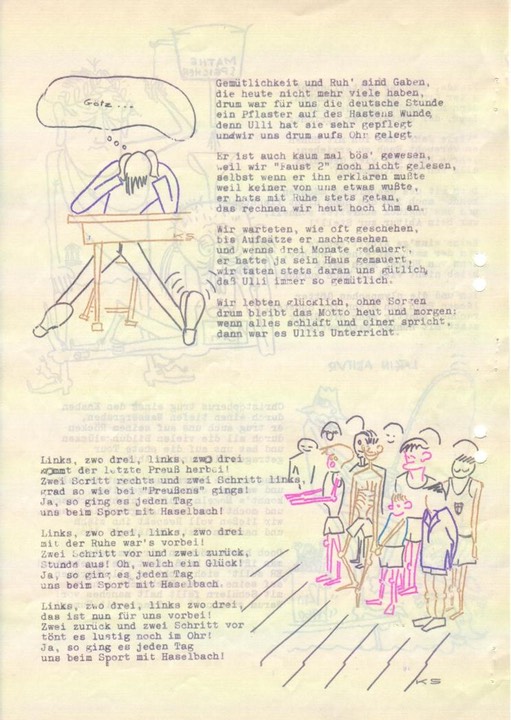 Götz...
Gemütlichkeit und Ruh' sind Gaben,
die heute nicht mehr viele haben,
drum war für uns die deutsche Stunde
ein Pflaster auf des Hastens Wunde,
denn Ulli hat sie sehr gepflegt
undwir uns drum aufs Ohr gelegt.
Er ist auch kaum mal bös' gewesen,
weil wir "Faust 2" noch nicht gelesen,
selbst wenn er ihn erklären mußte
weil keiner von uns etwas wußte,
er hats mit Ruhe stets getan,
das rechnen wir heut hoch ihm an.
Wir warteten, wie oft geschehen,
bis Aufsätze er nachgesehen
und wenns drei Monate gedauert,
er hatte ja sein Haus gemauert,
wir taten stets daran uns gütlich,
daß Ulli immer so gemütlich.
Wir lebten glücklich, ohne Sorgen
drum bleibt das Motto heut und morgen:
wenn alles schläft und einer spricht,
dann war es Ullis Unterricht.
KS
Links, zwo drei, links, zwo drei
kommt der letzte Preuß herbei!
Zwei Scritt rechts und zwei Schritt links,
grad so wie bei "Preußens" gings!
Ja, so ging es jeden Tag
uns beim Sport mit Haselbach!
Links, zwo drei, links, zwo drei
mit der Ruhe war's vorbei!
Zwei Schritt vor und zwei zurück,
Stunde aus! Oh, welch ein Glück!
Ja, so ging es jeden Tag
uns beim Sport mit Haselbach.
Links, zwo drei, links zwo drei,
das ist nun für uns vorbei!
Zwei zurück und zwei Schritt vor
tönt es lustig noch im Ohr!
Ja, so ging es jeden Tag
uns beim Sport mit Haselbach!
KS